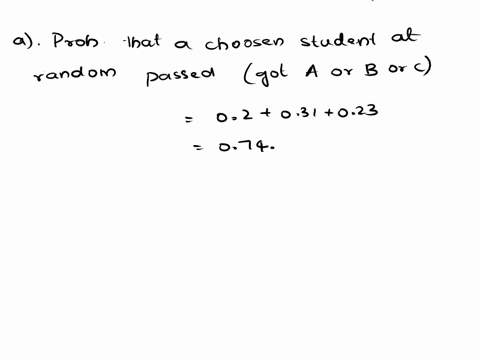 a). Prob. that a choosen student at
random passed (got A or B or C)
= 0.2 + 0.31 + 0.23
= 0.74.